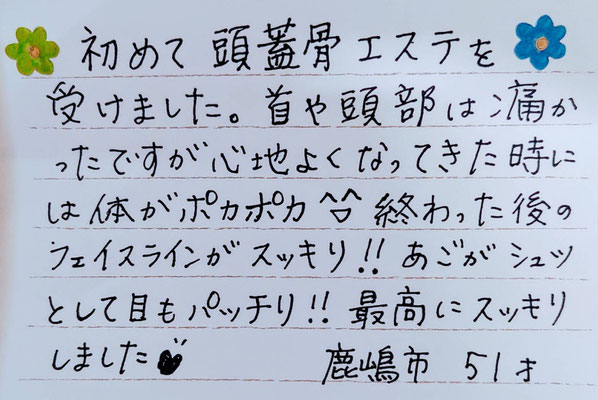 初めて 頭蓋骨エステを
受けました。首や頭部は痛か
ったですが心地よくなってきた時に
は体がポカポカ^□^終わった後の
フェイスラインがスッキリ!!あごがシュッ
として目もパッチリ!!最高にスッキリ
しました
鹿嶋市 51才